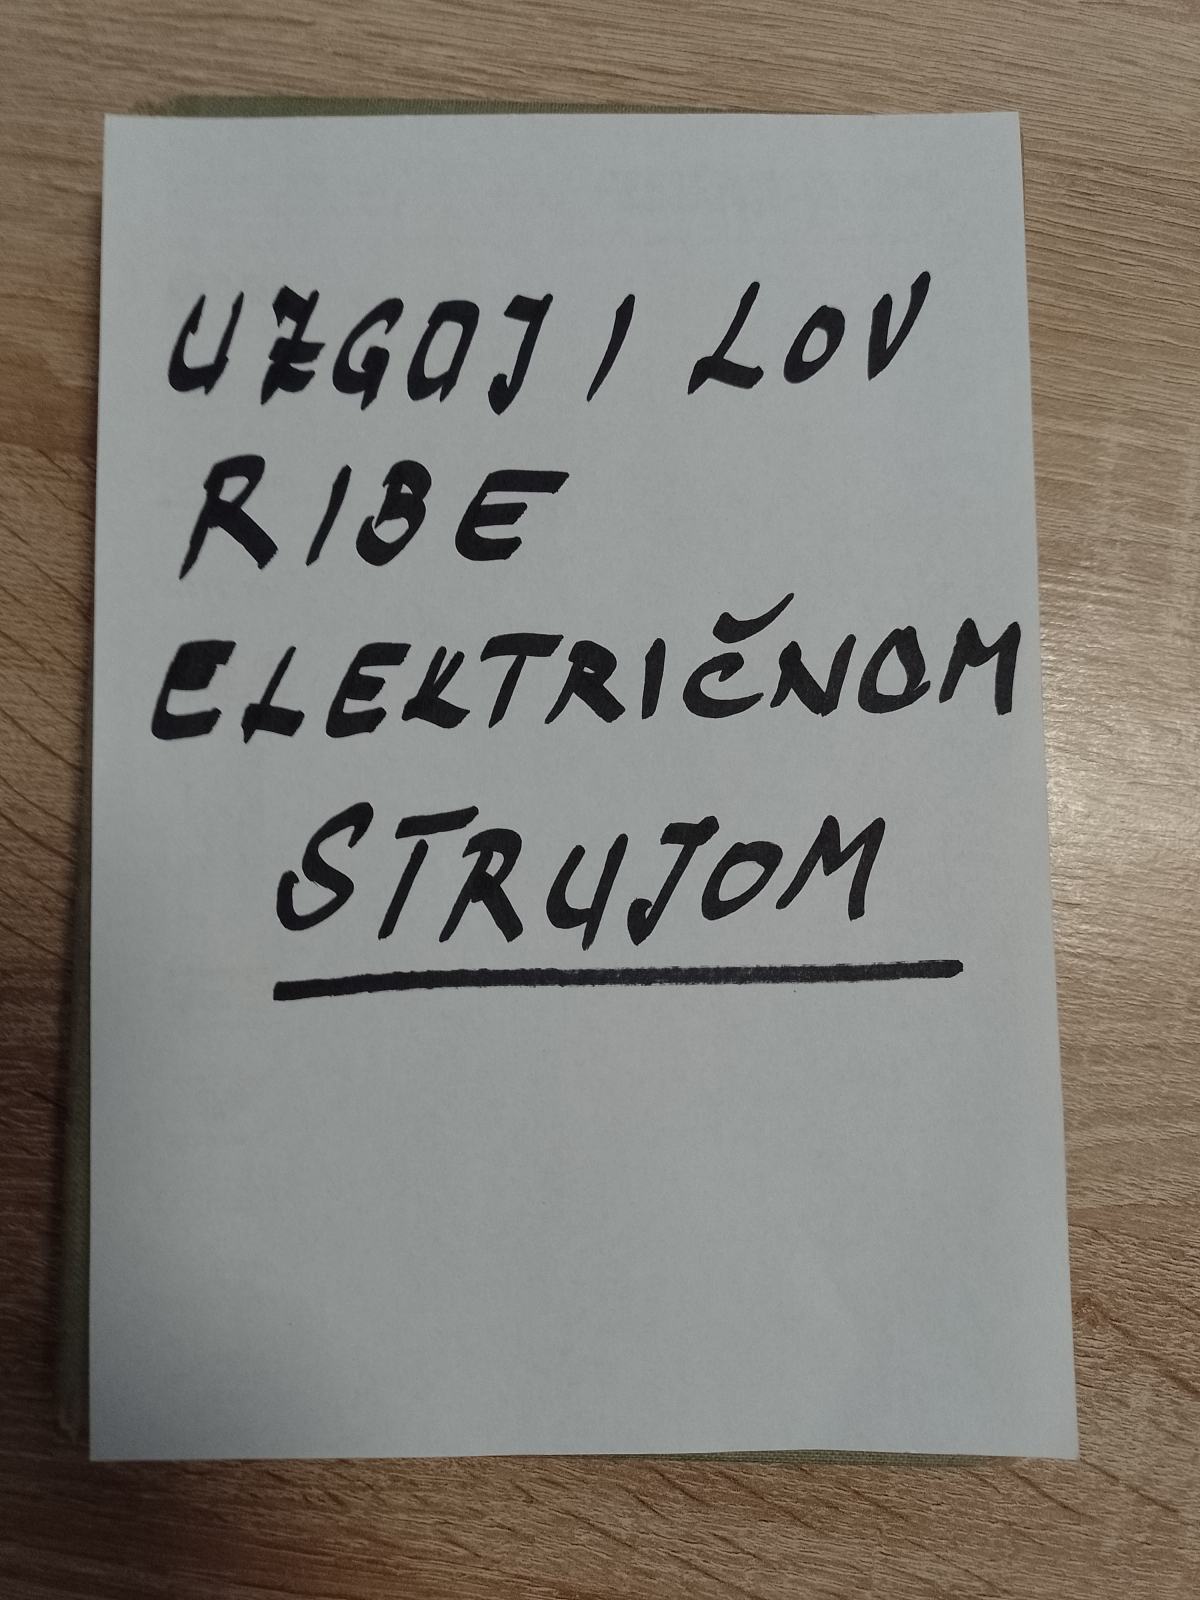 UZGOJ I LOV
RIBE
ELEKTRIČNOM
STRUJOM